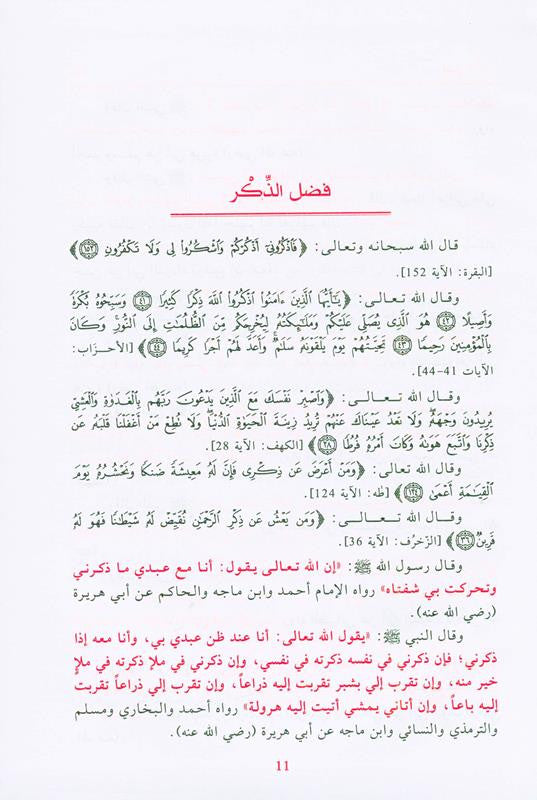 فضل الذِّكْر
قال الله سبحانه وتعالى: ﴿فَاذْكُرُونِي أَذْكُرْكُمْ وَاشْكُرُوا لِي وَلَا تَكْفُرُونِ ﴿١٥٢﴾﴾
[البقرة: الآية 152].
وقال الله تعالى: ﴿يَا أَيُّهَا الَّذِينَ ءَامَنُوا اذْكُرُوا اللَّهَ ذِكْرًا كَثِيرًا ﴿٤١﴾ وَسَبِّحُوهُ بُكْرَةً
وَأَصِيلًا ﴿٤٢﴾ هُوَ الَّذِي يُصَلِّي عَلَيْكُمْ وَمَلَائِكَتُهُ لِيُخْرِجَكُم مِّنَ الظُّلُمَاتِ إِلَى النُّورِ وَكَانَ
بِالْمُؤْمِنِينَ رَحِيمًا ﴿٤٣﴾ تَحِيَّتُهُمْ يَوْمَ يَلْقَوْنَهُ سَلَامٌ وَأَعَدَّ لَهُمْ أَجْرًا كَرِيمًا ﴿٤٤﴾﴾ [الأحزاب:
الآيات 41-44].
وقال الله تعالى: ﴿وَاصْبِرْ نَفْسَكَ مَعَ الَّذِينَ يَدْعُونَ رَبَّهُم بِالْغَدَاةِ وَالْعَشِيِّ
يُرِيدُونَ وَجْهَهُ وَلَا تَعْدُ عَيْنَاكَ عَنْهُمْ تُرِيدُ زِينَةَ الْحَيَاةِ الدُّنْيَا وَلَا تُطِعْ مَنْ أَغْفَلْنَا قَلْبَهُ عَن
ذِكْرِنَا وَاتَّبَعَ هَوَاهُ وَكَانَ أَمْرُهُ فُرُطًا ﴿٢٨﴾﴾ [الكهف: الآية 28].
وقال الله تعالى: ﴿وَمَنْ أَعْرَضَ عَن ذِكْرِي فَإِنَّ لَهُ مَعِيشَةً ضَنكًا وَنَحْشُرُهُ يَوْمَ
الْقِيَامَةِ أَعْمَى ﴿١٢٤﴾﴾ [طه: الآية 124].
وقال الله تعالى: ﴿وَمَن يَعْشُ عَن ذِكْرِ الرَّحْمَنِ نُقَيِّضْ لَهُ شَيْطَانًا فَهُوَ لَهُ
قَرِينٌ ﴿٣٦﴾﴾ [الزّخرُف: الآية 36].
وقال رسول الله ﷺ: «إن الله تعالى يقول: أنا مع عبدي ما ذكرني
وتحركت بي شفتاه» رواه الإمام أحمد وابن ماجه والحاكم عن أبي هريرة
(رضي الله عنه).
وقال النبي ﷺ: «يقول الله تعالى: أنا عند ظن عبدي بي، وأنا معه إذا
ذكرني؛ فإن ذكرني في نفسه ذكرته في نفسي، وإن ذكرني في ملإٍ ذكرته في ملإٍ
خير منه، وإن تقرب إلي بشبر تقربت إليه ذراعاً، وإن تقرب إلي ذراعاً تقربت
إليه باعاً، وإن أتاني يمشي أتيت إليه هرولة» رواه أحمد والبخاري ومسلم
والترمذي والنسائي وابن ماجه عن أبي هريرة (رضي الله عنه).
11